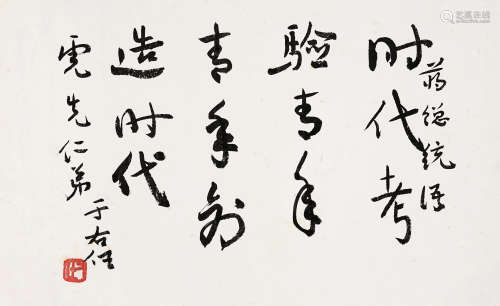 蒋总统语
时代考
验青年
青年创
造时代
霓先仁弟
于右任